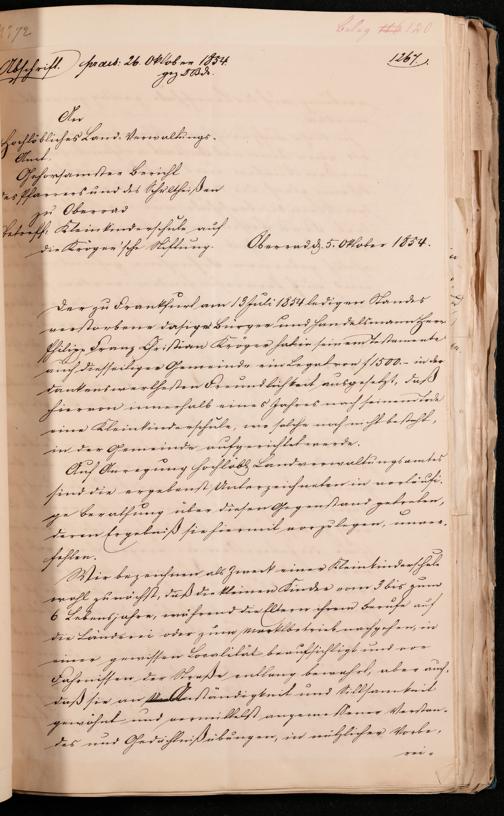 Beleg 120
Abschrift. praes: 26. Oktober 1854.
1267.
An
Hochlöbliches Land-Verwaltungs-
Amt.
Gehorsamster Bericht
des Pfarrers und des Schultheißen
zu Oberrad
betreff: Kleinkinderschule auf
die Kröger'sche Stiftung.
Oberrad d. 5. Oktober 1854.
Der zu Frankfurt am 13 Juli 1854 ledigen Standes
verstorbene dasige Bürger und Handelsmann Herr
Philipp Franz Christian Kröger hat in seinem Testamente
auch diesseitiger Gemeinde ein Legat von f 1500.- in der
dankenswerthesten Freundlichkeit ausgesetzt, daß
hiervon innerhalb eines Jahres nach seinem Tode
eine Kleinkinderschule, wo solche noch nicht besteht,
in der Gemeinde aufgerichtet werde.
Auf Anregung Hochlöbl. Landverwaltungsamtes
sind die ergebenst Unterzeichneten in vorläufi-
ge Berathung über diesen Gegenstand getreten,
deren Ergebniß sie hiermit vorzulegen, unver-
fehlen.
Wir bezeichnen als Zweck einer Kleinkinderschule
wohl zunächst, daß die kleinen Kinder vom 3 bis zum
6 Lebensjahre, während die Eltern ihrem Berufe auf
die Länderei oder zum Marktbetrieb nachgehen, in
einer gewissen Localität beaufsichtigt und vor
Fährnissen der Straße entlang bewahrt, aber auch
daß sie an Anständigkeit und Sittsamkeit
gewöhnt und vermittelst angemessener Verstan-
des und Gedächtnißübungen, in nützlicher Vorbe-
rei-